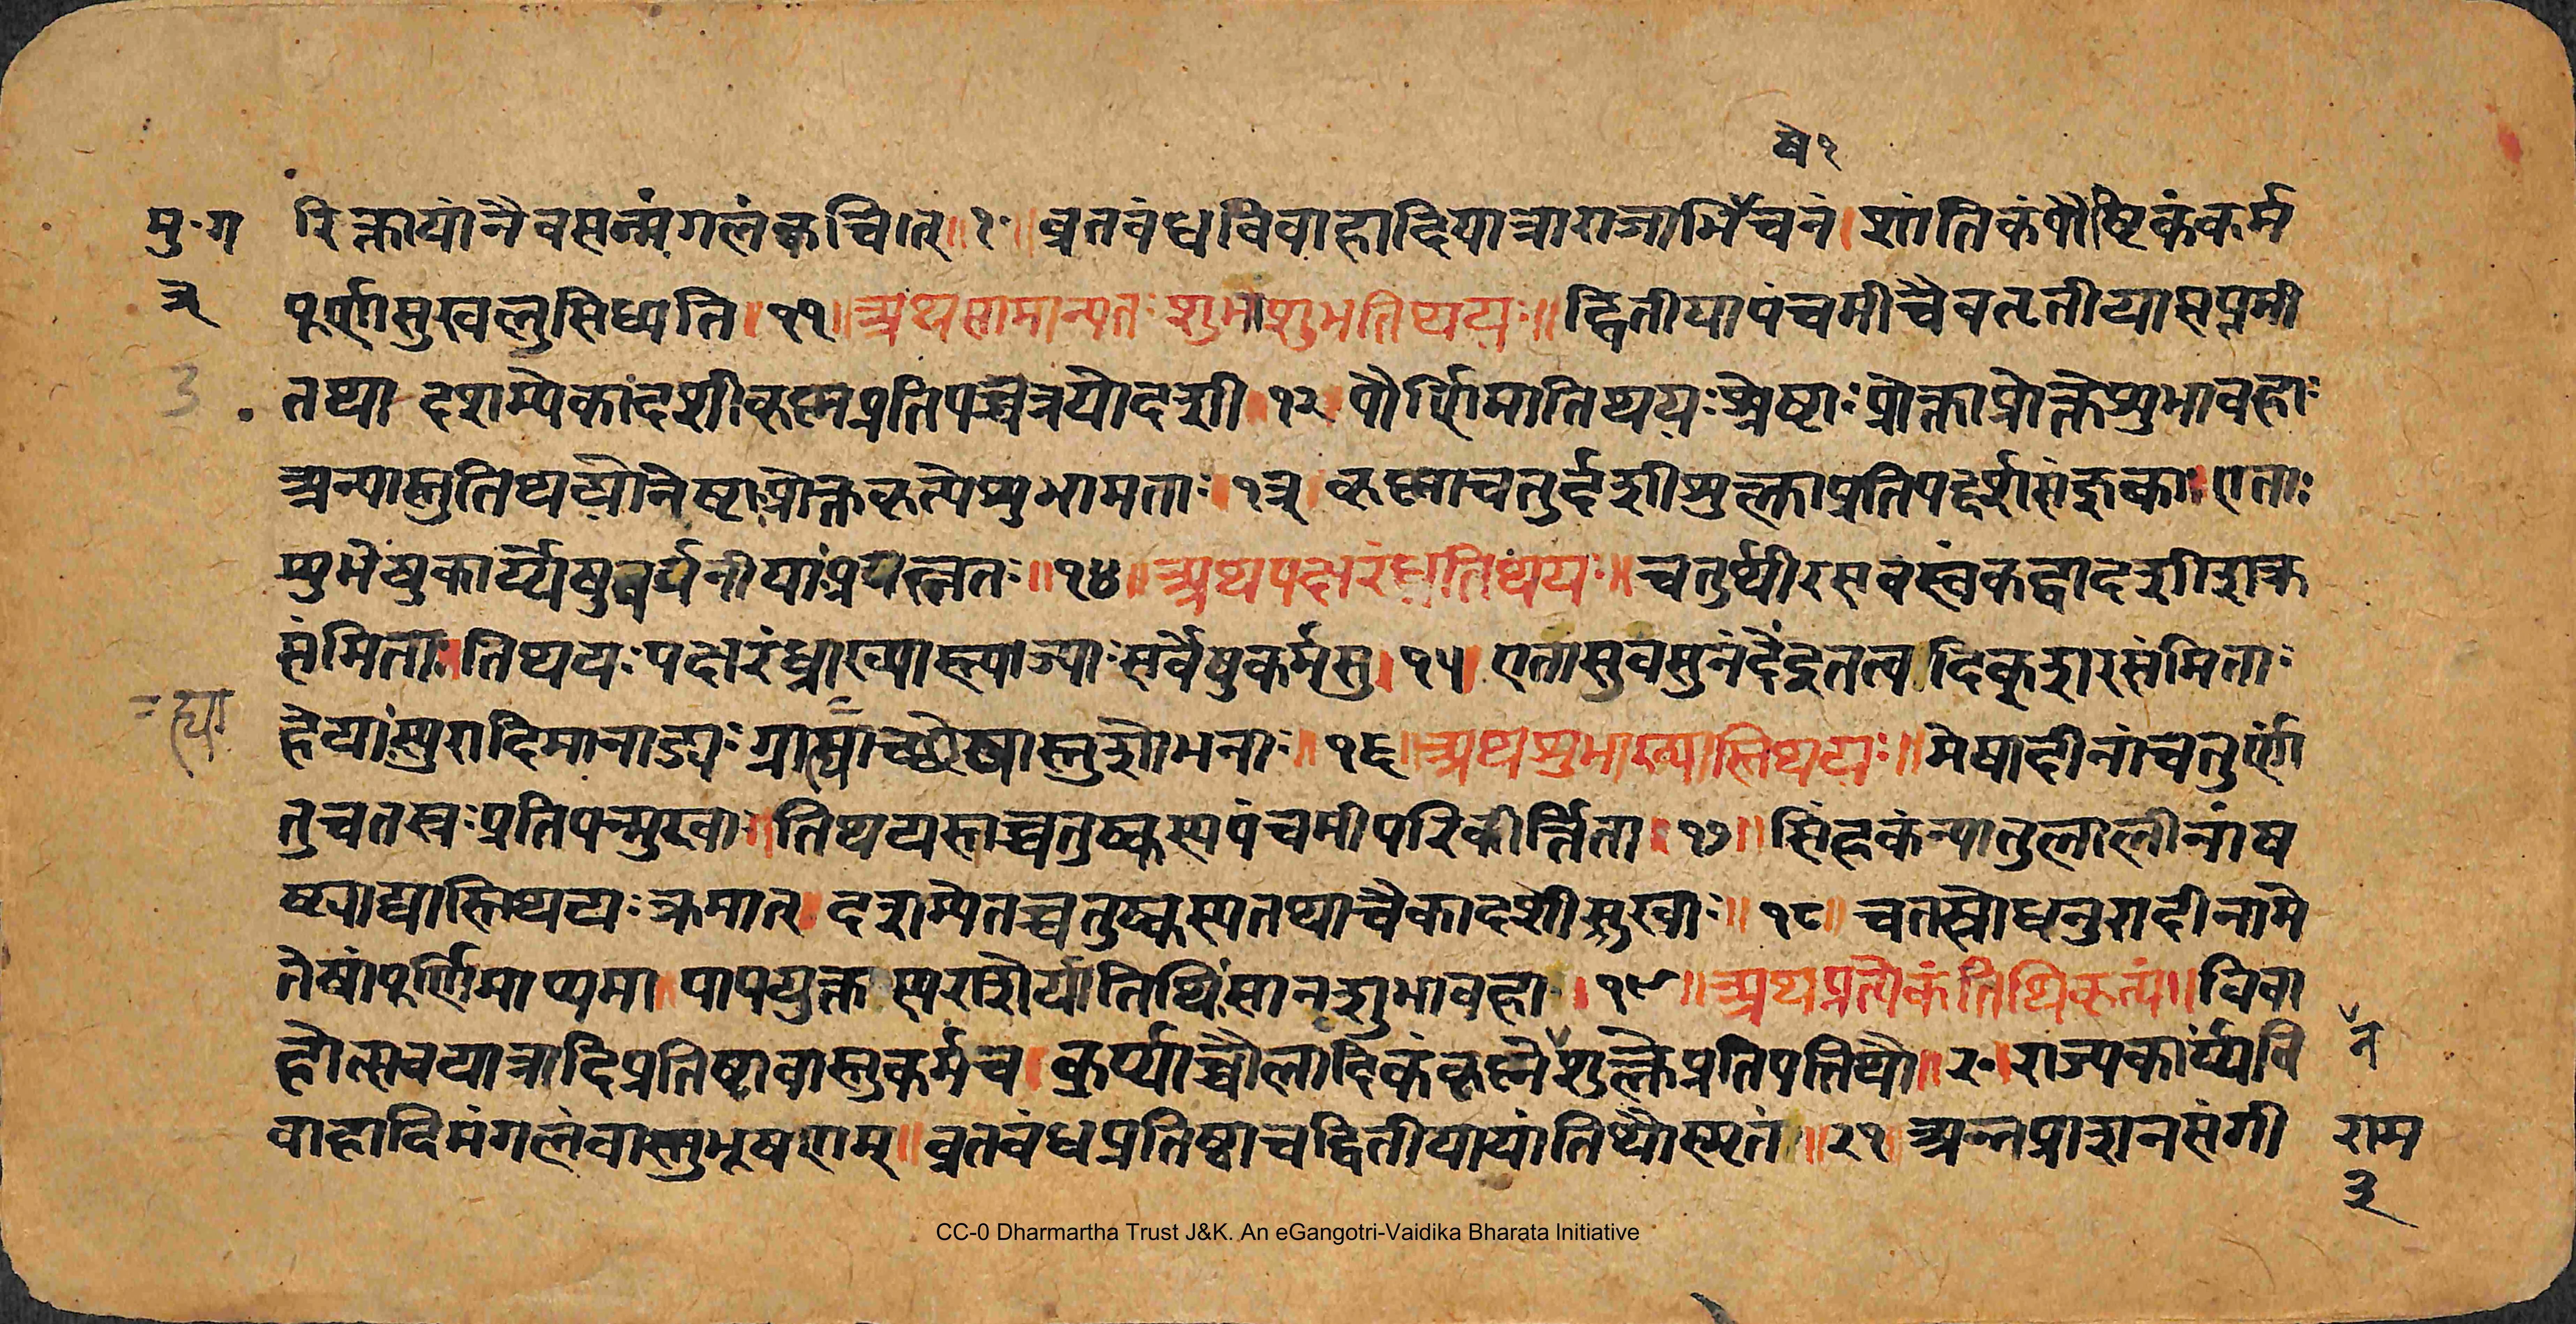 षे१
मु॰ग रिक्तायांनैवसन्मंगलंक्वचित्॥१॰॥व्रतवंधविवाहादियात्राराजाभिॅचनं।शांतिकंपौष्टिकंकर्म
३ पूर्णासुखलुसिध्यति॥११॥अथसामान्यतःशुभाशुभतिथयः॥द्वितीयापंचमीचैवतृतीयासप्तमी
3 तथा दशम्येकादशीकृष्मप्रतिपच्चत्रयोदशी।१२।पौर्णिमातिथयःश्रेष्टाःप्रोक्ताप्रोक्तेशुभावहाः
अन्यास्तुतिथयोनेष्टाप्रोक्तकृत्येशुभामताः।१३।कृष्माचतुर्दशीशुक्लाप्रतिपद्दर्शसंज्ञकाः।एताः
शुभेषुकार्य्येषुवर्जनीयाःप्रयत्नतः॥१४॥अथपक्षरंध्रतिथयः॥चतुर्थीरसवस्वंकद्वादशीशक्र
संमिताः।तिथयःपक्षरंध्राख्यास्त्याज्याःसर्वेषुकर्मसु।१५।एतासुवसुनंदेंद्रतत्व दिक्शरसंमिताः
=ह्या हेयाःस्युरादिमानाड्यःग्रास्याःच्छेषास्तुशोभनाः॥१६॥अथशुभाख्यास्तिथयः॥मेषादीनांचतुर्णां
तुचतस्रःप्रतिपन्मुखाः।तिथयस्तच्चतुष्कस्यपंचमीपरिकीर्त्तिता।१७॥सिंहकंन्यातुलालीनांष
ष्ट्याद्यास्तिथयःक्रमात्।दशम्येतच्चतुष्कस्यतथाचैकादशीसुखाः॥१८॥चतस्रोधनुरादीनामे
तेषांपूर्णिमाप्यमा।पापयुक्तस्यराशेर्यातिथिःसानशुभावहा।१९॥अथप्रत्येकंतिथिकृत्यं॥विवा
होत्सवयात्रादिप्रतिष्टावास्तुकर्मच।कुर्य्याच्चौलादिकंकृष्मेॅशुक्लेप्रतिपत्तिथौ॥२॰।राज्यकार्य्यवि न
वाहादिमंगलंवास्तुभूषणम्॥व्रतवंधप्रतिष्ठाचद्वितीयायांतिथौस्मृतं॥२१॥अन्नप्राशनसंगी राम
३
CC-0 Dharmartha Trust J&K. An eGangotri-Vaidika Bharata Initiative